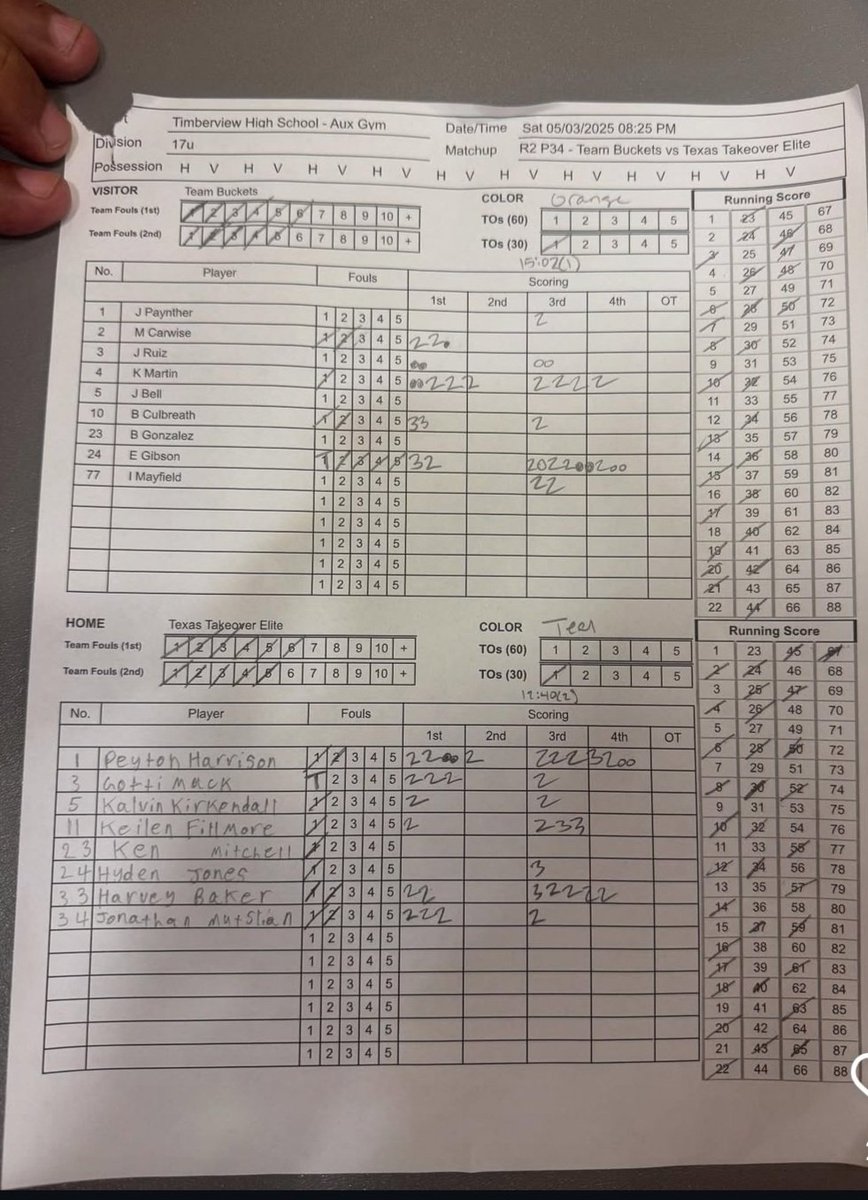 Timberview High School - Aux Gym
Date/Time Sat 05/03/2025 08:25 PM
Division 17u
Matchup R2 P34 - Team Buckets vs Texas Takeover Elite
Possession H V H V H V H V H V H V H V H V H V H V
VISITOR Team Buckets COLOR Orange Running Score
Team Fouls (1st) 1 2 3 4 5 6 7 8 9 10 + TOs (60) 1 2 3 4 5
Team Fouls (2nd) 1 2 3 4 5 6 7 8 9 10 + TOs (30) 1 2 3 4 5
15:02(1)
No. Player Fouls Scoring
1st 2nd 3rd 4th OT
1 J Paynther 1 2 3 4 5 2
2 M Carwise 1 2 3 4 5 22
3 J Ruiz 1 2 3 4 5 00
4 K Martin 1 2 3 4 5 222 2222
5 J Bell 1 2 3 4 5
10 B Culbreath 1 2 3 4 5 33 2
23 B Gonzalez 1 2 3 4 5
24 E Gibson 1 2 3 4 5 32
77 I Mayfield 1 2 3 4 5 22
1 2 3 4 5
1 2 3 4 5
1 2 3 4 5
1 2 3 4 5
1 2 3 4 5
1 23 45 67
2 24 46 68
3 25 47 69
4 26 48 70
5 27 49 71
6 28 50 72
7 29 51 73
8 30 52 74
9 31 53 75
10 32 54 76
11 33 55 77
12 34 56 78
13 35 57 79
14 36 58 80
15 37 59 81
16 38 60 82
17 39 61 83
18 40 62 84
19 41 63 85
20 42 64 86
21 43 65 87
22 44 66 88
HOME Texas Takeover Elite COLOR Teal Running Score
Team Fouls (1st) 1 2 3 4 5 6 7 8 9 10 + TOs (60) 1 2 3 4 5
Team Fouls (2nd) 1 2 3 4 5 6 7 8 9 10 + TOs (30) 1 2 3 4 5
12:40(2)
No. Player Fouls Scoring
1st 2nd 3rd 4th OT
1 Peyton Harrison 1 2 3 4 5 22 2 2223200
3 Gotti Mack 2 3 4 5 222 2
5 Kalvin Kirkendall 1 2 3 4 5 2 2
11 Keilen Fillmore 1 2 3 4 5 2 233
23 Ken Mitchell 1 2 3 4 5
24 Hyden Jones 1 2 3 4 5 3
33 Harvey Baker 1 2 3 4 5 22 32222
34 Jonathan 1 2 3 4 5 222 2
1 2 3 4 5
1 2 3 4 5
1 2 3 4 5
1 2 3 4 5
1 2 3 4 5
1 2 3 4 5
1 23 45 67
2 24 46 68
3 25 47 69
4 26 48 70
5 27 49 71
6 28 50 72
7 29 51 73
8 30 52 74
9 31 53 75
10 32 54 76
11 33 55 77
12 34 56 78
13 35 57 79
14 36 58 80
15 37 59 81
16 38 60 82
17 39 61 83
18 40 62 84
19 41 63 85
20 42 64 86
21 43 65 87
22 44 66 88